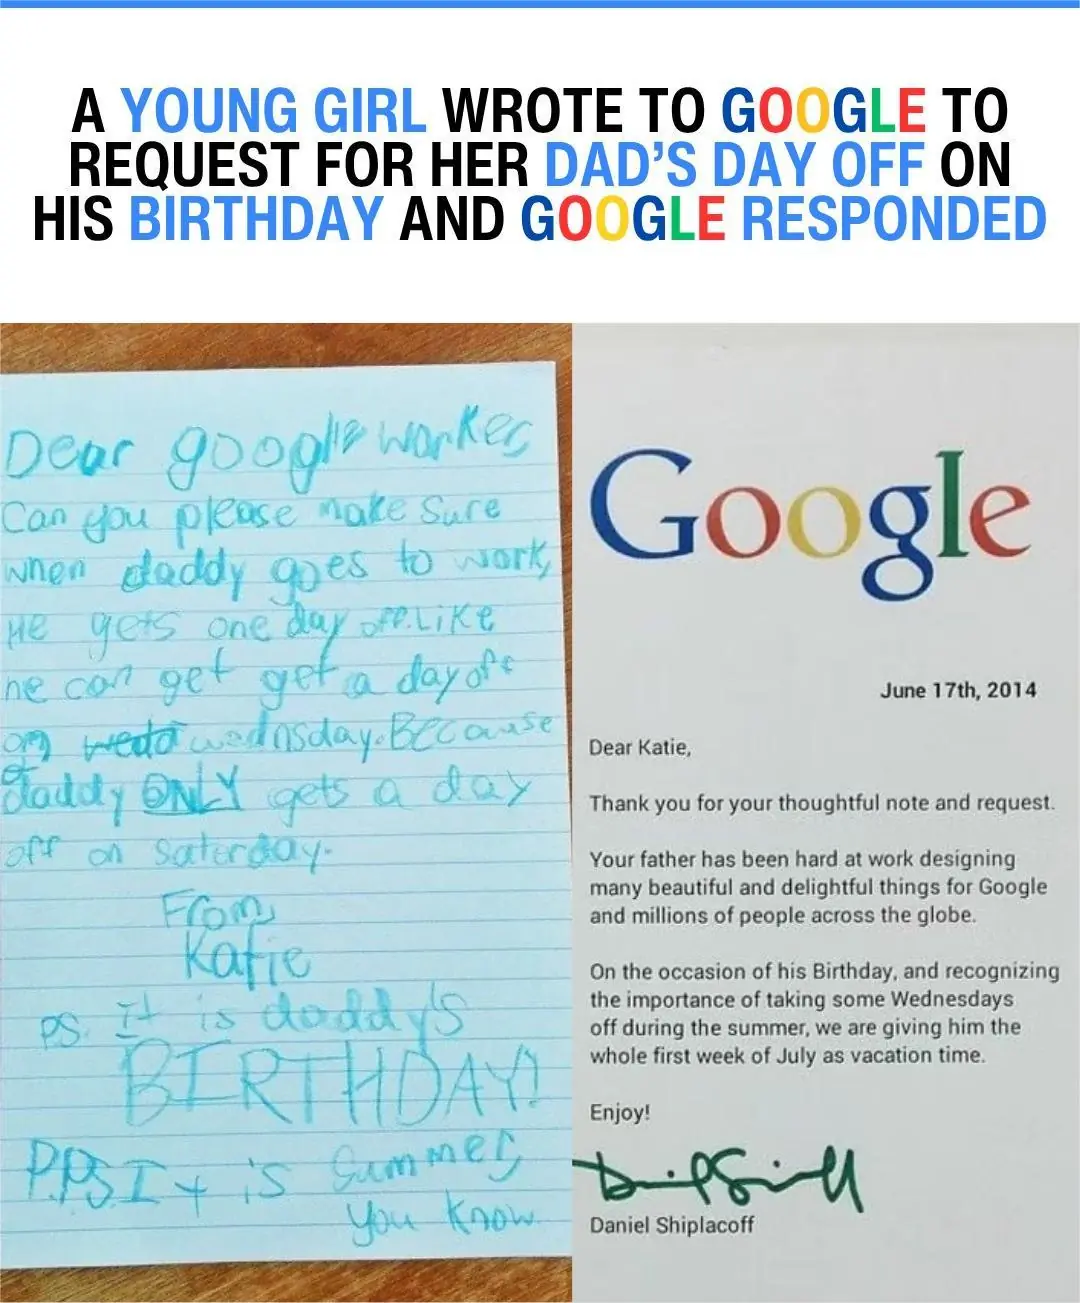 A YOUNG GIRL WROTE TO GOOGLE TO
REQUEST FOR HER DAD'S DAY OFF ON
HIS BIRTHDAY AND GOOGLE RESPONDED
Dear google worker,
Can you please make sure
when daddy goes to work,
He gets one day off. Like
he can get get a day off
on wednsday. Because
daddy ONLY gets a day
off on saturday.
From,
Katie
P.S. It is daddy's
BIRTHDAY!
P.P.S. It is summer,
you know
Google
June 17th, 2014
Dear Katie,
Thank you for your thoughtful note and request.
Your father has been hard at work designing
many beautiful and delightful things for Google
and millions of people across the globe.
On the occasion of his Birthday, and recognizing
the importance of taking some Wednesdays
off during the summer, we are giving him the
whole first week of July as vacation time.
Enjoy!
Daniel Shiplacoff